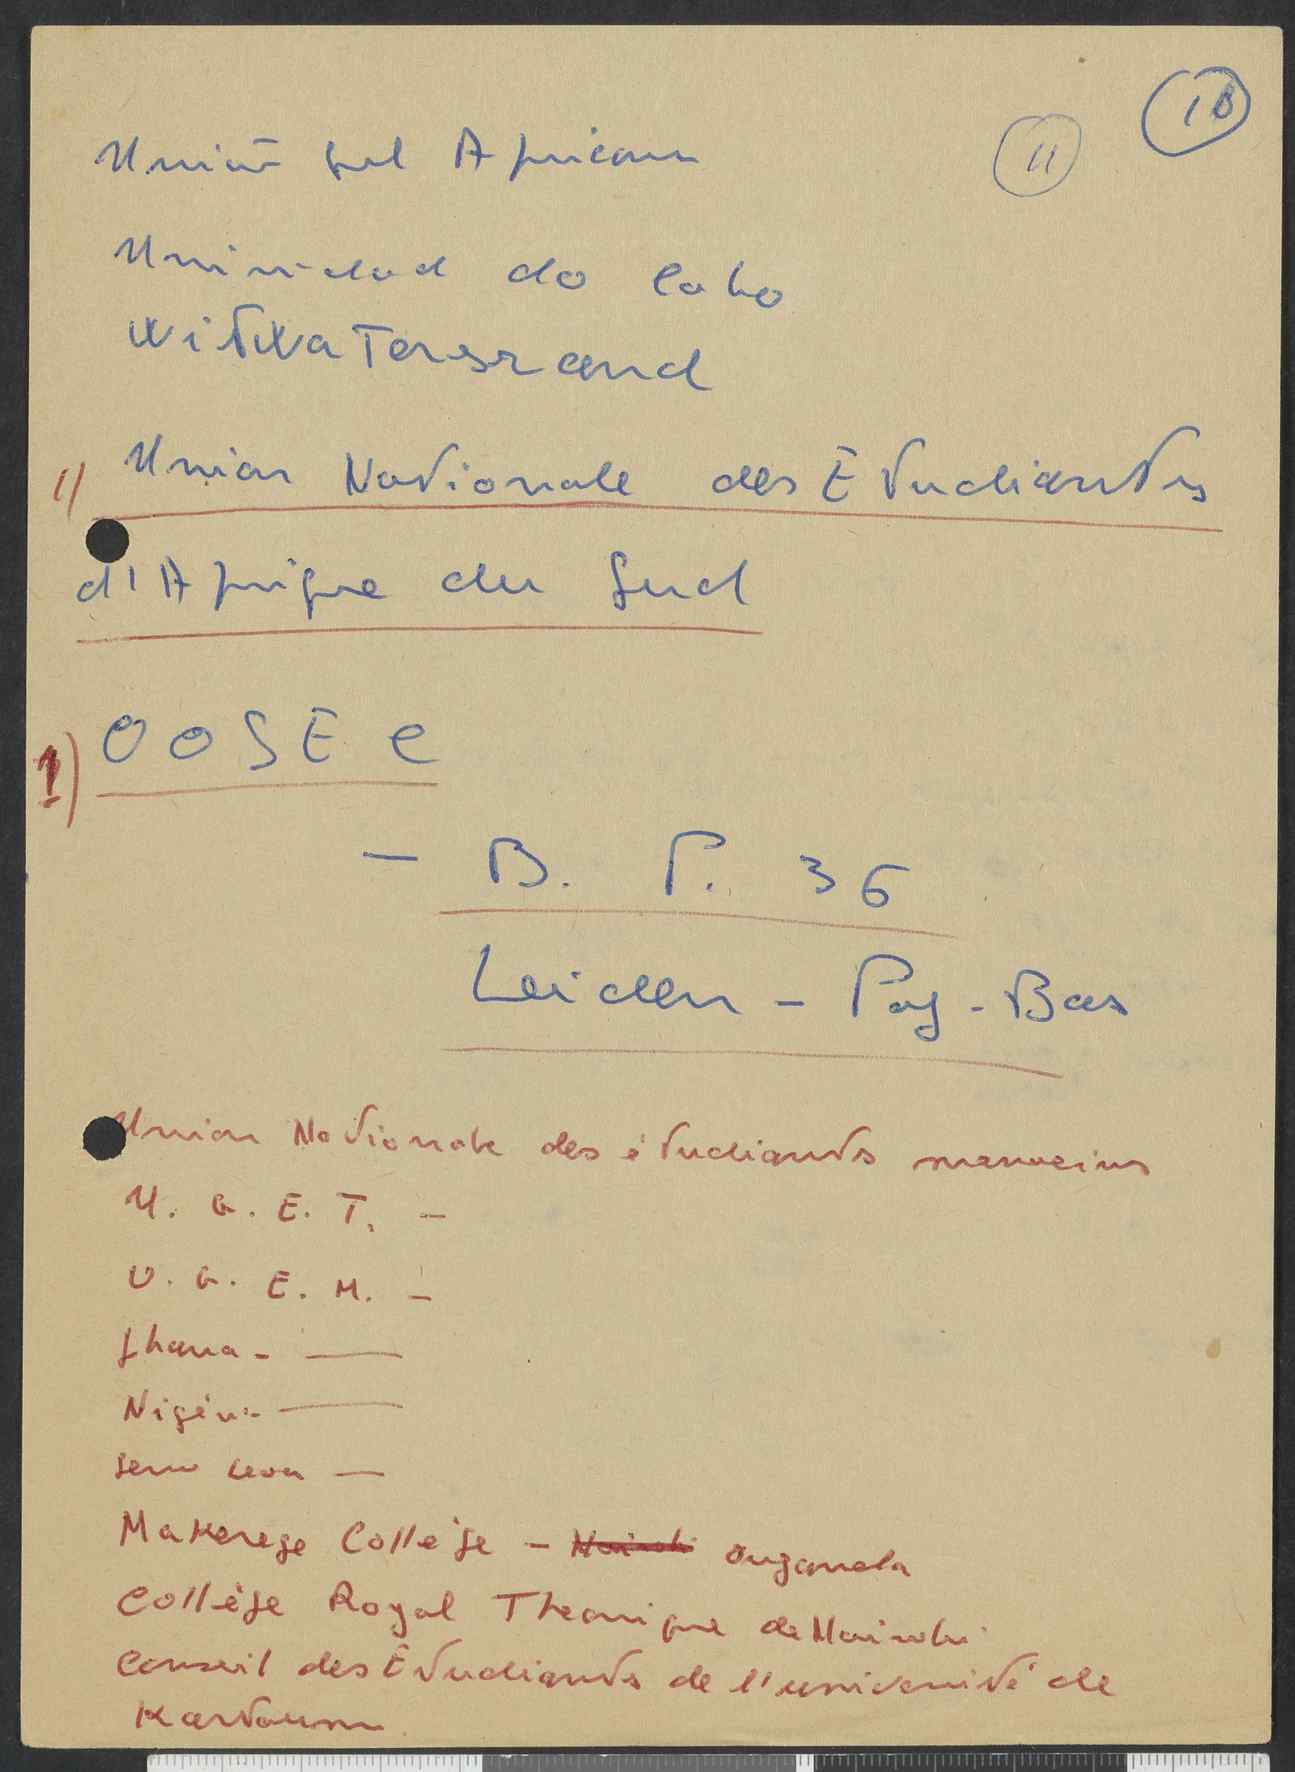 10
11
União Sul Africana
Univ-dad do Cabo
WitWaTersrand
1) Union Nationale des Etudiants
d'Afrique du Sud
1) OOSEC
- B. P. 36
Leiden - Pay-Bas
Union Nationale des étudiants marocains
U. G. E. T. -
U. G. E. M. -
Ghana - —
Nigéria - —
Serra Leoa —
Makerege Collège - Nairobi Ouganda
Collège Royal Thecnique de Nairobi
Conseil des Etudiants de l'université de
Kartoum